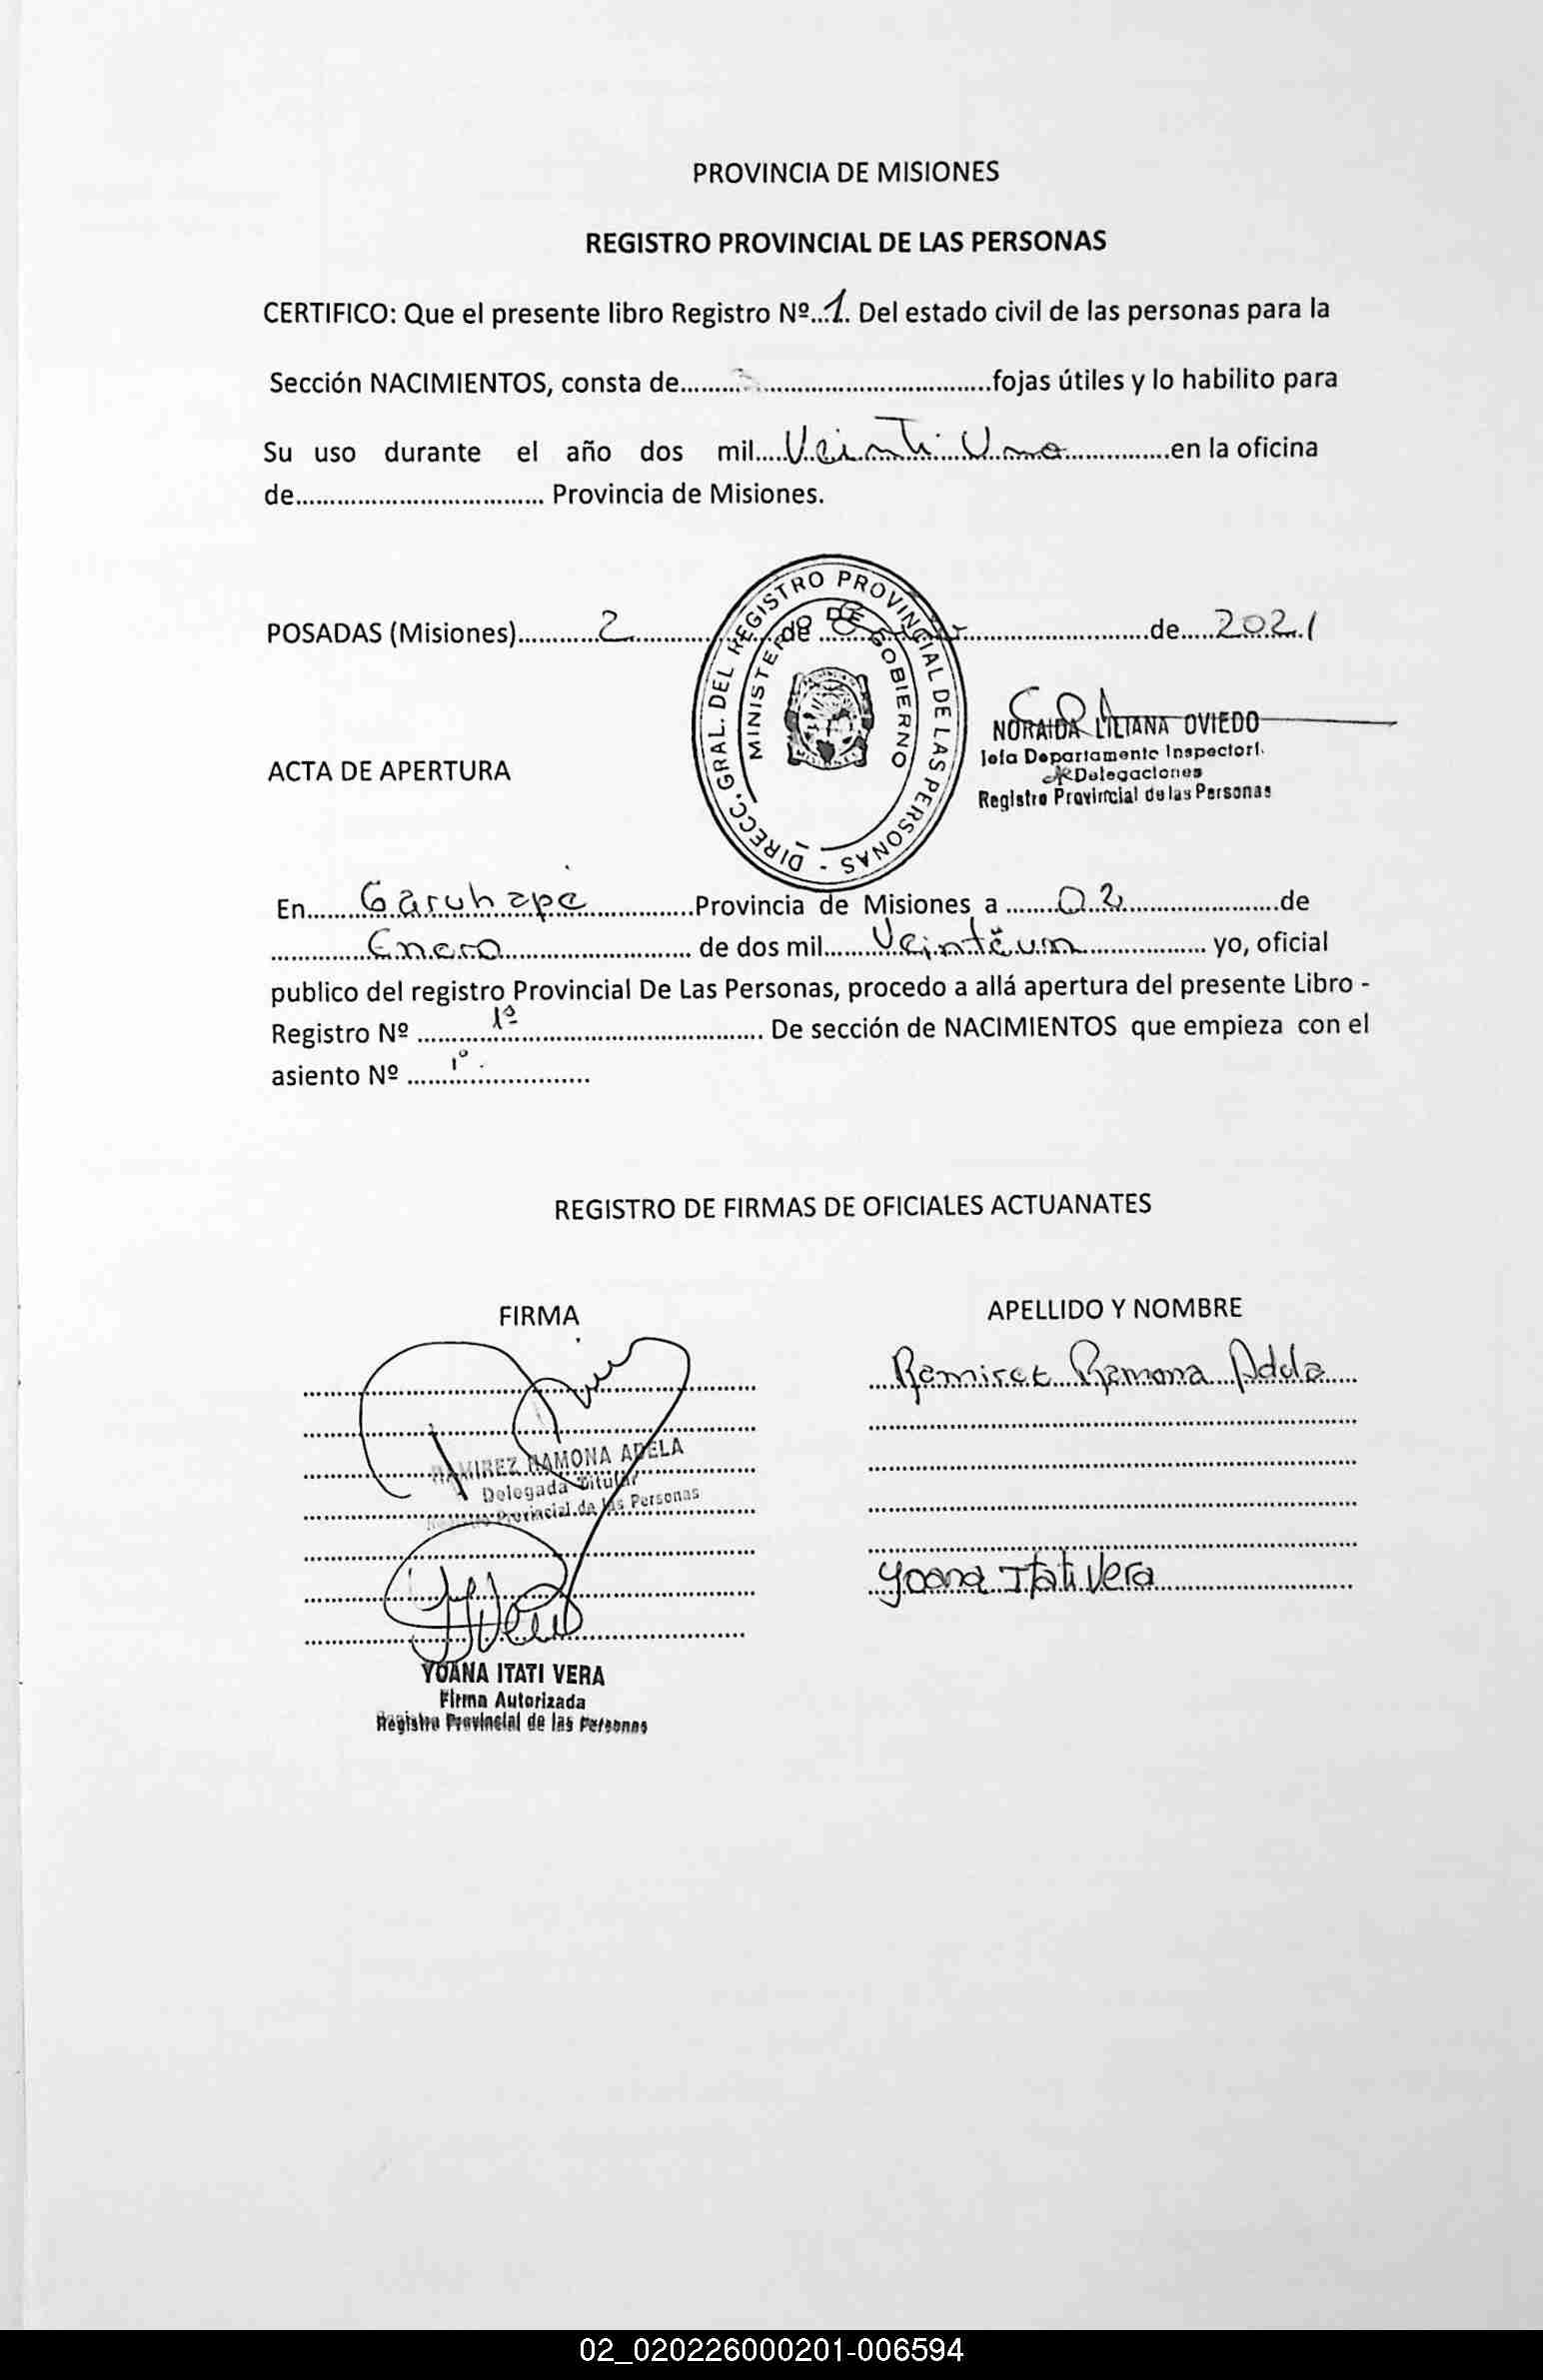 PROVINCIA DE MISIONES
REGISTRO PROVINCIAL DE LAS PERSONAS
CERTIFICO: Que el presente libro Registro Nº...1. Del estado civil de las personas para la
Sección NACIMIENTOS, consta de..........fojas útiles y lo habilito para
Su uso durante el año dos mil.....Veinti Uno...............en la oficina
de.................................. Provincia de Misiones.
POSADAS (Misiones)...........2............de ..........................de.....2021
DIRECC. GRAL. DEL REGISTRO PROVINCIAL DE LAS PERSONAS -
MINISTERIO DE GOBIERNO
NORAIDA LILIANA OVIEDO
Jefa Departamento Inspectorí.
Delegaciones
Registro Provincial de las Personas
ACTA DE APERTURA
En..........Garuhapé...............Provincia de Misiones a .......02......................de
..............Enero.......................... de dos mil.......Veintiun................. yo, oficial
publico del registro Provincial De Las Personas, procedo a allá apertura del presente Libro -
Registro Nº ..........1º.................................. De sección de NACIMIENTOS que empieza con el
asiento Nº ......1º...................
REGISTRO DE FIRMAS DE OFICIALES ACTUANATES
FIRMA APELLIDO Y NOMBRE
Ramirez Ramona Adela
RAMIREZ RAMONA ADELA
Delegada Titular
Registro Provincial de las Personas
Yoana Itati Vera
YOANA ITATI VERA
Firma Autorizada
Registro Provincial de las Personas
02_020226000201-006594